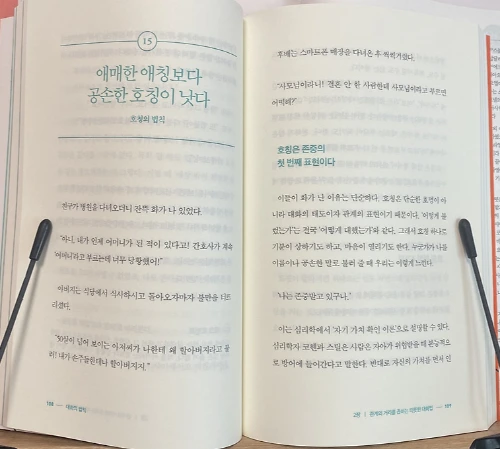 15
애매한 애칭보다
공손한 호칭이 낫다
호칭의 법칙
친구가 병원을 다녀오더니 잔뜩 화가 나 있었다.
"아니, 내가 언제 어머니가 된 적이 있다고! 간호사가 계속
'어머니'라고 부르는데 너무 당황했어!"
아버지는 식당에서 식사하시고 돌아오자마자 불만을 터트
리셨다.
"50살이 넘어 보이는 아저씨가 나한테 왜 할아버지라고 불
러! 내가 손주들한테나 할아버지지."
160 대화의 법칙
후배는 스마트폰 매장을 다녀온 후 씩씩거렸다.
"사모님이라니! 결혼 안 한 사람한테 사모님이라고 부르면
어떡해?"
호칭은 존중의
첫 번째 표현이다
이들이 화가 난 이유는 단순하다. 호칭은 단순한 호명이 아
니라 대화의 태도이자 관계의 표현이기 때문이다. '어떻게 불
렀는가'는 결국 '어떻게 대했는가'와 같다. 그래서 호칭 하나로
기분이 상하기도 하고, 마음이 열리기도 한다. 누군가가 나를
이름이나 공손한 말로 불러 줄 때 우리는 이렇게 느낀다.
'나는 존중받고 있구나.'
이는 심리학에서 '자기 가치 확인 이론'으로 설명할 수 있다.
심리학자 코헨과 스틸은 사람은 자아가 위협받을 때 본능적으
로 방어에 들어간다고 말한다. 반대로 자신의 가치를 먼저 인
2장 관계의 거리를 좁히는 따뜻한 대화법 161